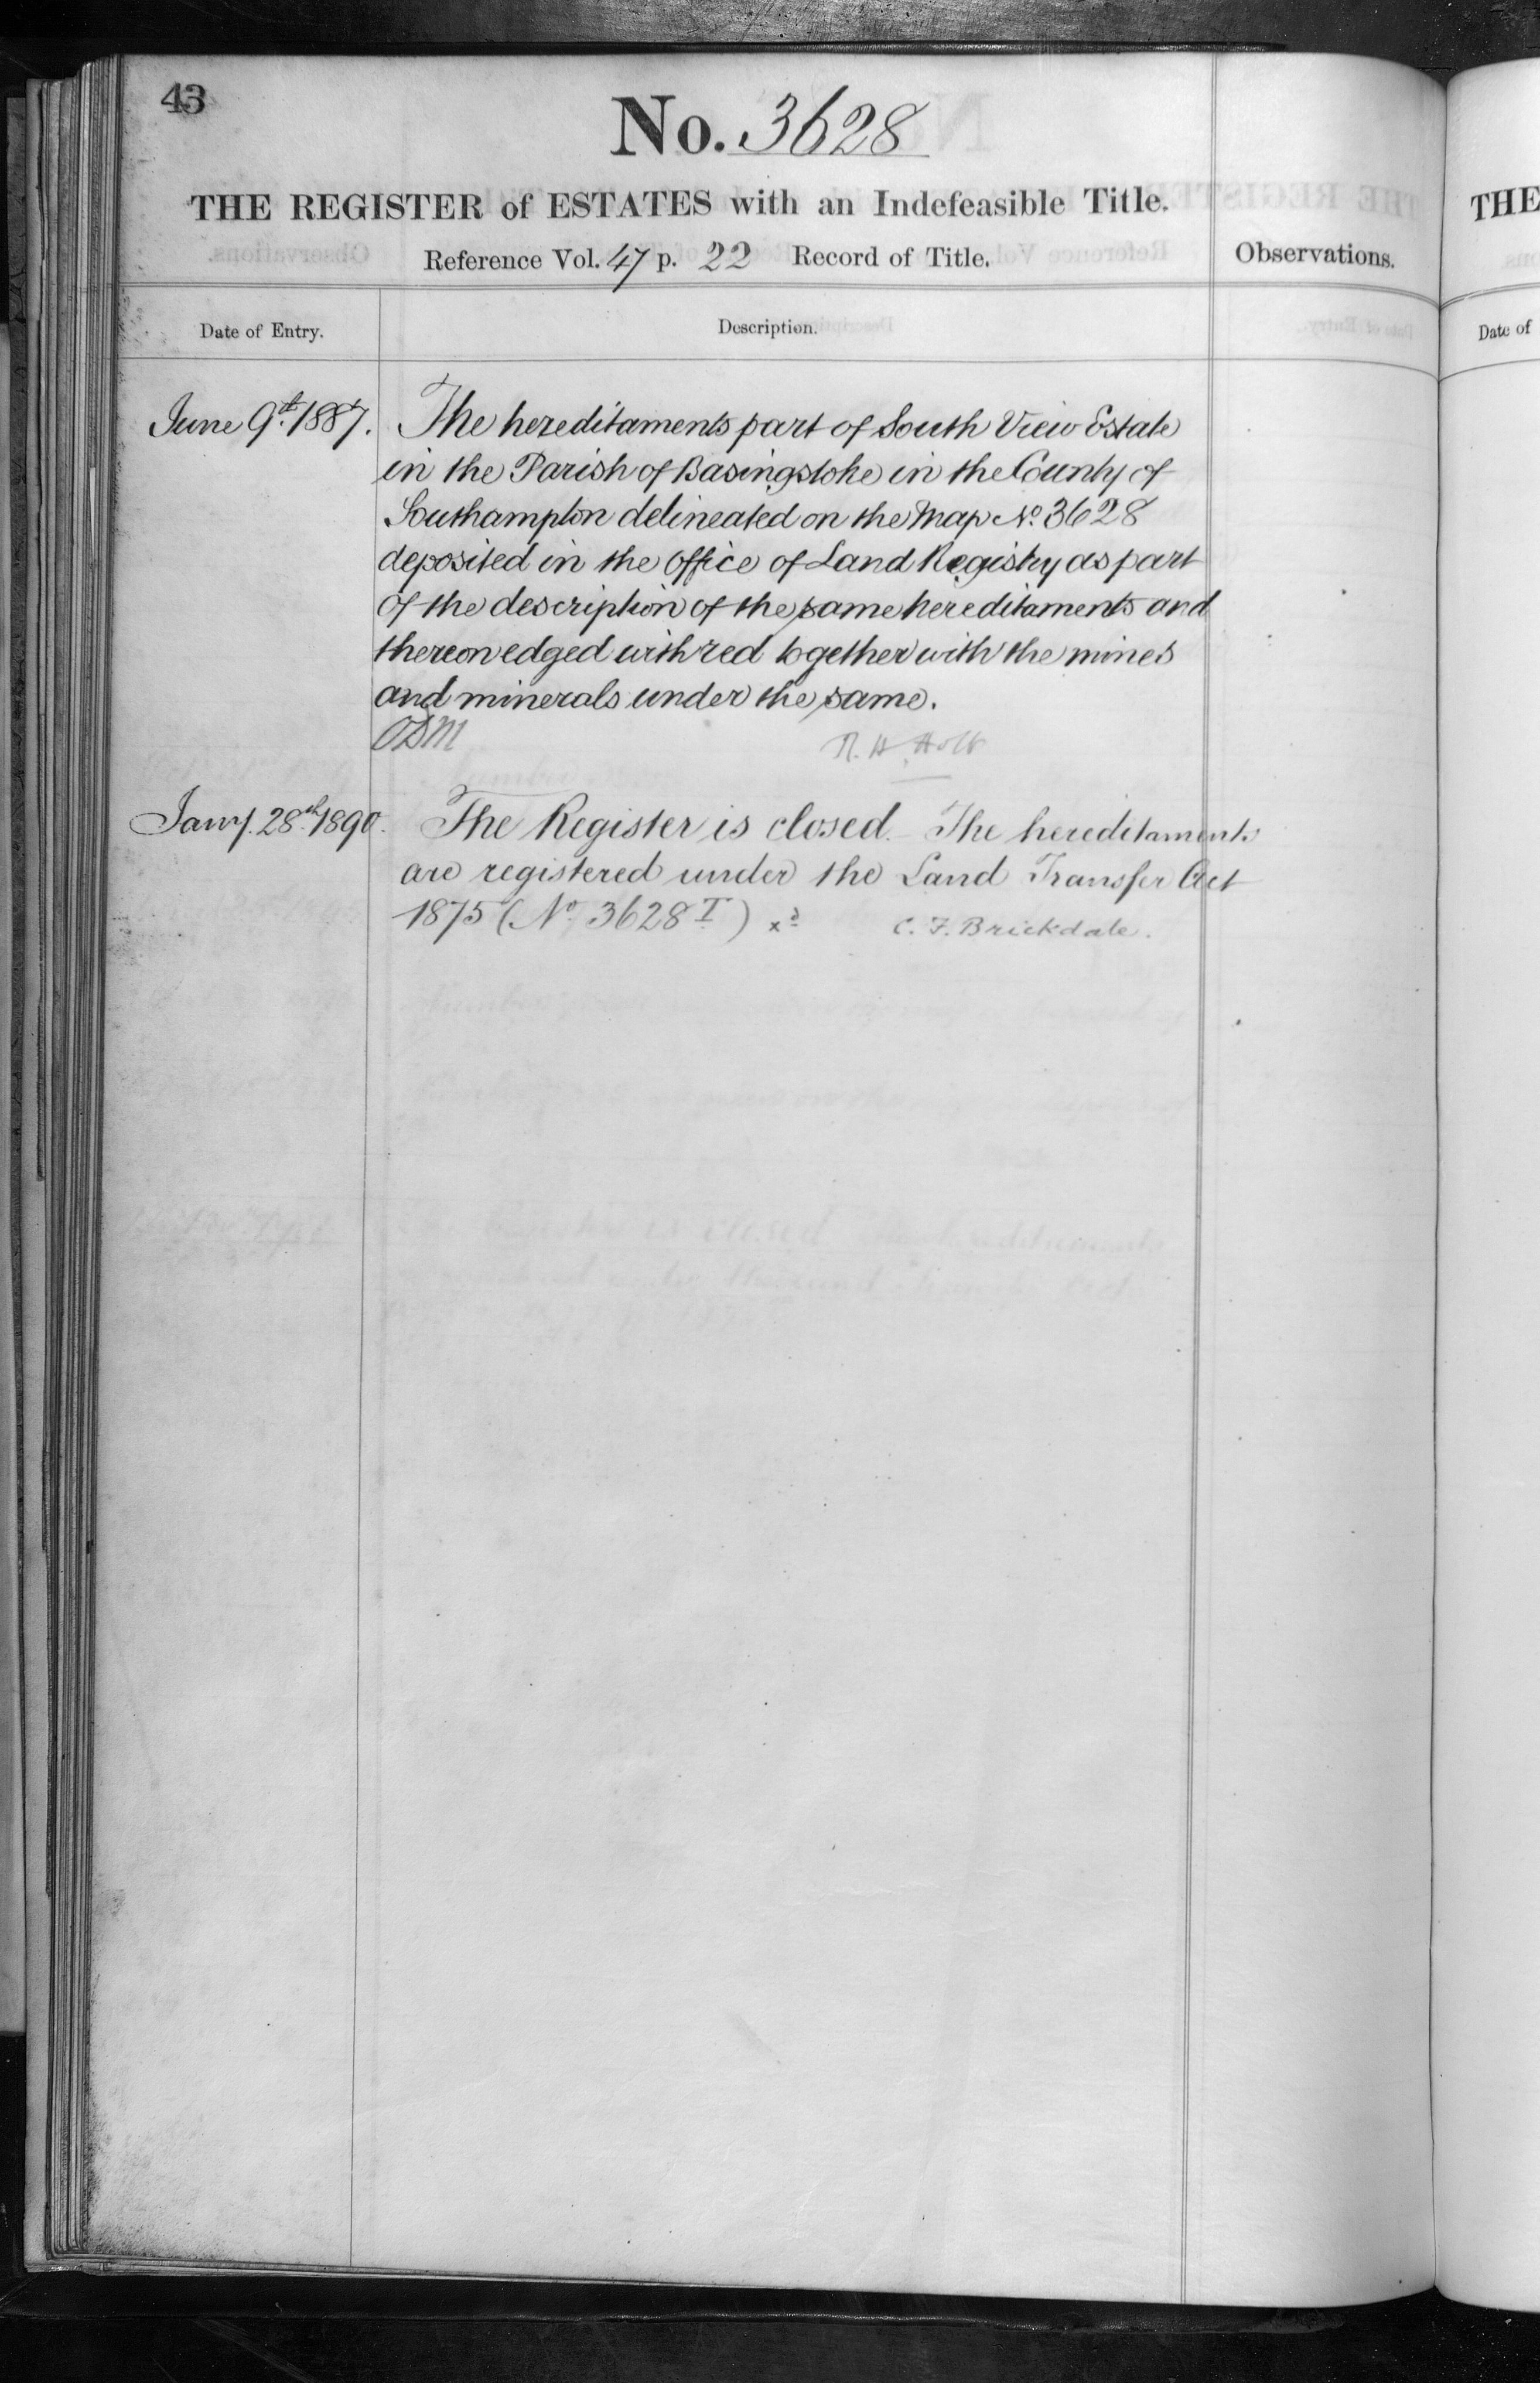 43
No. 3628
THE REGISTER of ESTATES with an Indefeasible Title.
Reference Vol. 47 p. 22 Record of Title.
Observations.
Date of Entry.
Description.
June 9th. 1887.
The hereditaments part of South View Estate
in the Parish of Basingstoke in the County of
Southampton delineated on the Map No. 3628
deposited in the office of Land Registry as part
of the description of the same hereditaments and
thereon edged with red together with the mines
and minerals under the same.
R. H. Holt
Jany. 28th. 1890.
The Register is closed. The hereditaments
are registered under the Land Transfer Act
1875 (No. 3628 T) xd
C. F. Brickdale.
THE
Date of